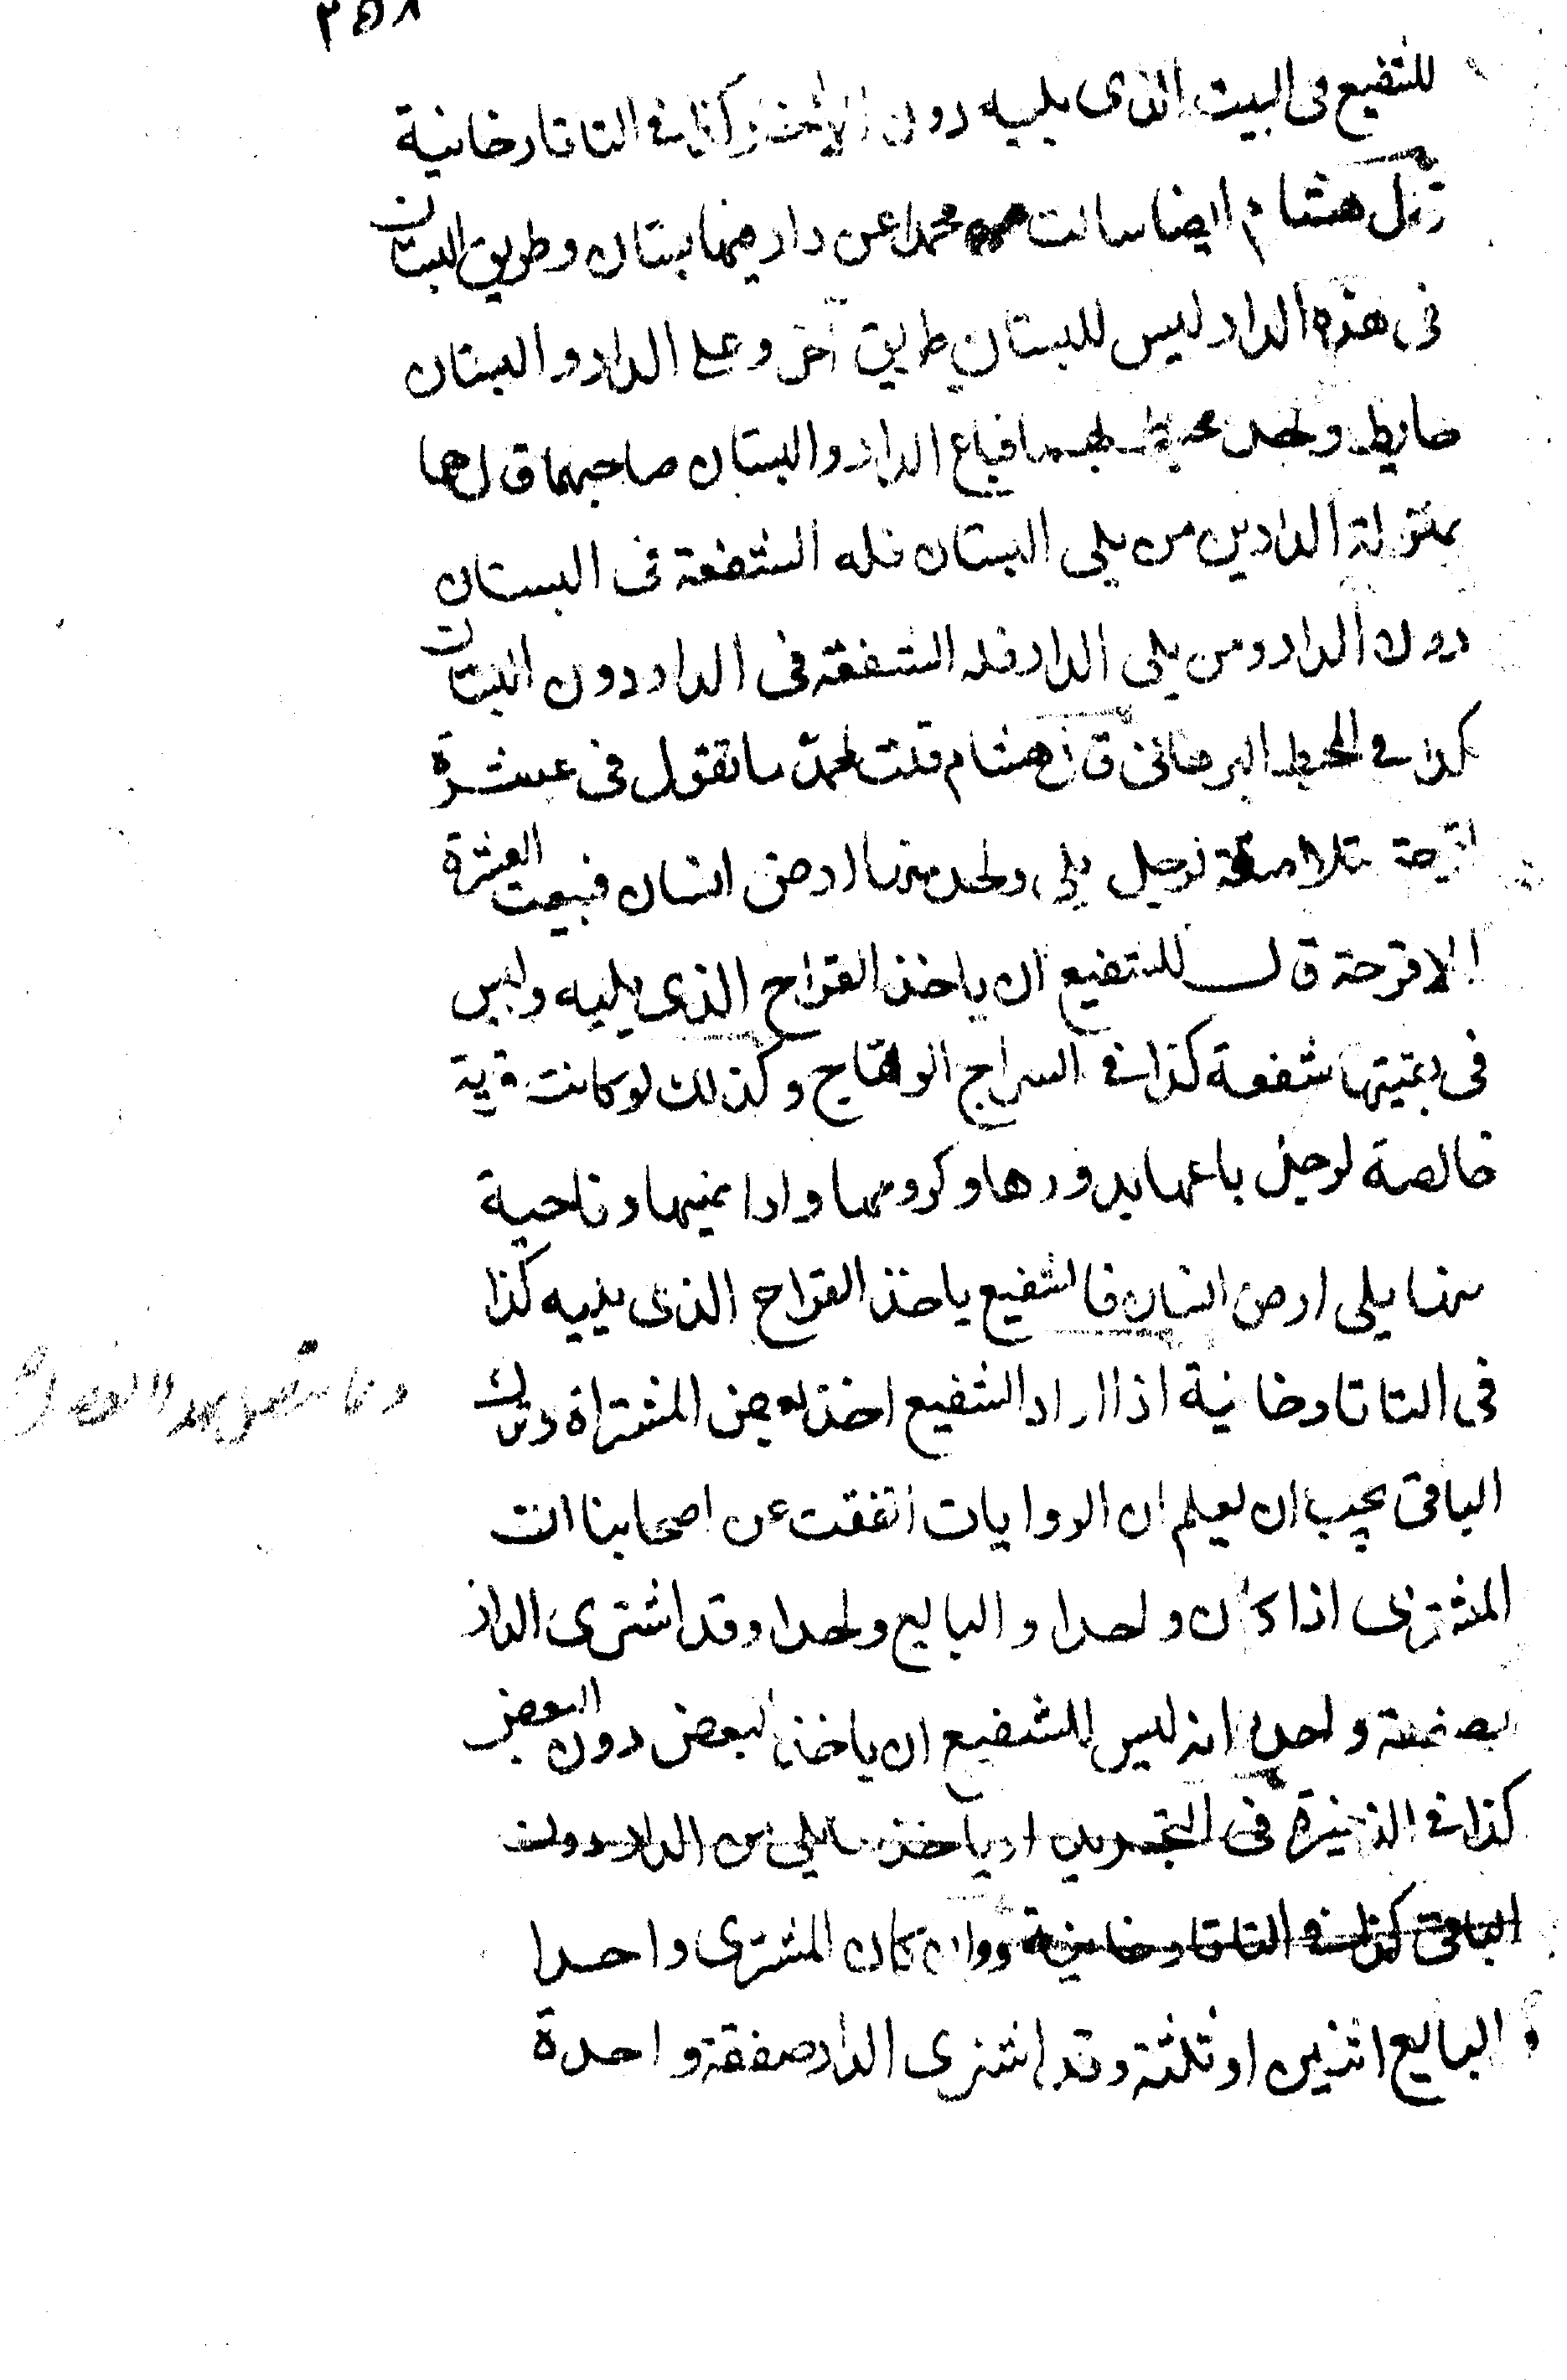 ٢٥٨
للشفيع فى البيت الذى يليه دون الآخر كذا فى التاتارخانية
قال هشام ايضا سالت محمدا عن دار فيها بستان وطريق البستان
فى هذه الدار ليس للبستان طريق آخر وعلى الدار والبستان
حايط واحد محيط بهما فباع الدار والبستان صاحبهما قال هما
بمنزلة الدارين من يلى البستان فله الشفعة فى البستان
دون الدار ومن يلى الدار فله الشفعة فى الدار دون البستان
كذا فى المحيط البرهانى قال هشام قلت لمحمد ما تقول فى عشرة
اقرحة متلاصقة لرجل يلى واحد منها ارض انسان فبيعت العشرة
الاقرحة قال للشفيع ان ياخذ القراح الذى يليه وليس
فى بقيتها شفعة كذا فى السراج الوهاج وكذلك لو كانت قرية
خالصة لرجل باعها بدورها وكرومها واراضيها وناحية
منها يلى ارض انسان فالشفيع ياخذ القراح الذى يليه كذا
فى التاتارخانية اذا اراد الشفيع اخذ بعض المشتراة وترك
الباقى يجب ان يعلم ان الروايات اتفقت عن اصحابنا ان
المشترى اذا كان واحدا والبايع واحدا وقد اشترى الدار
بصفقة واحدة انه ليس للشفيع ان ياخذ البعض دون البعض
كذا فى الذخيرة فى التجريد او ياخذ ما يلى من الدار دون
الباقى كذا فى التاتارخانية وان كان المشترى واحدا
و البايع اثنين او ثلثة وقد اشترى الدار صفقة واحدة